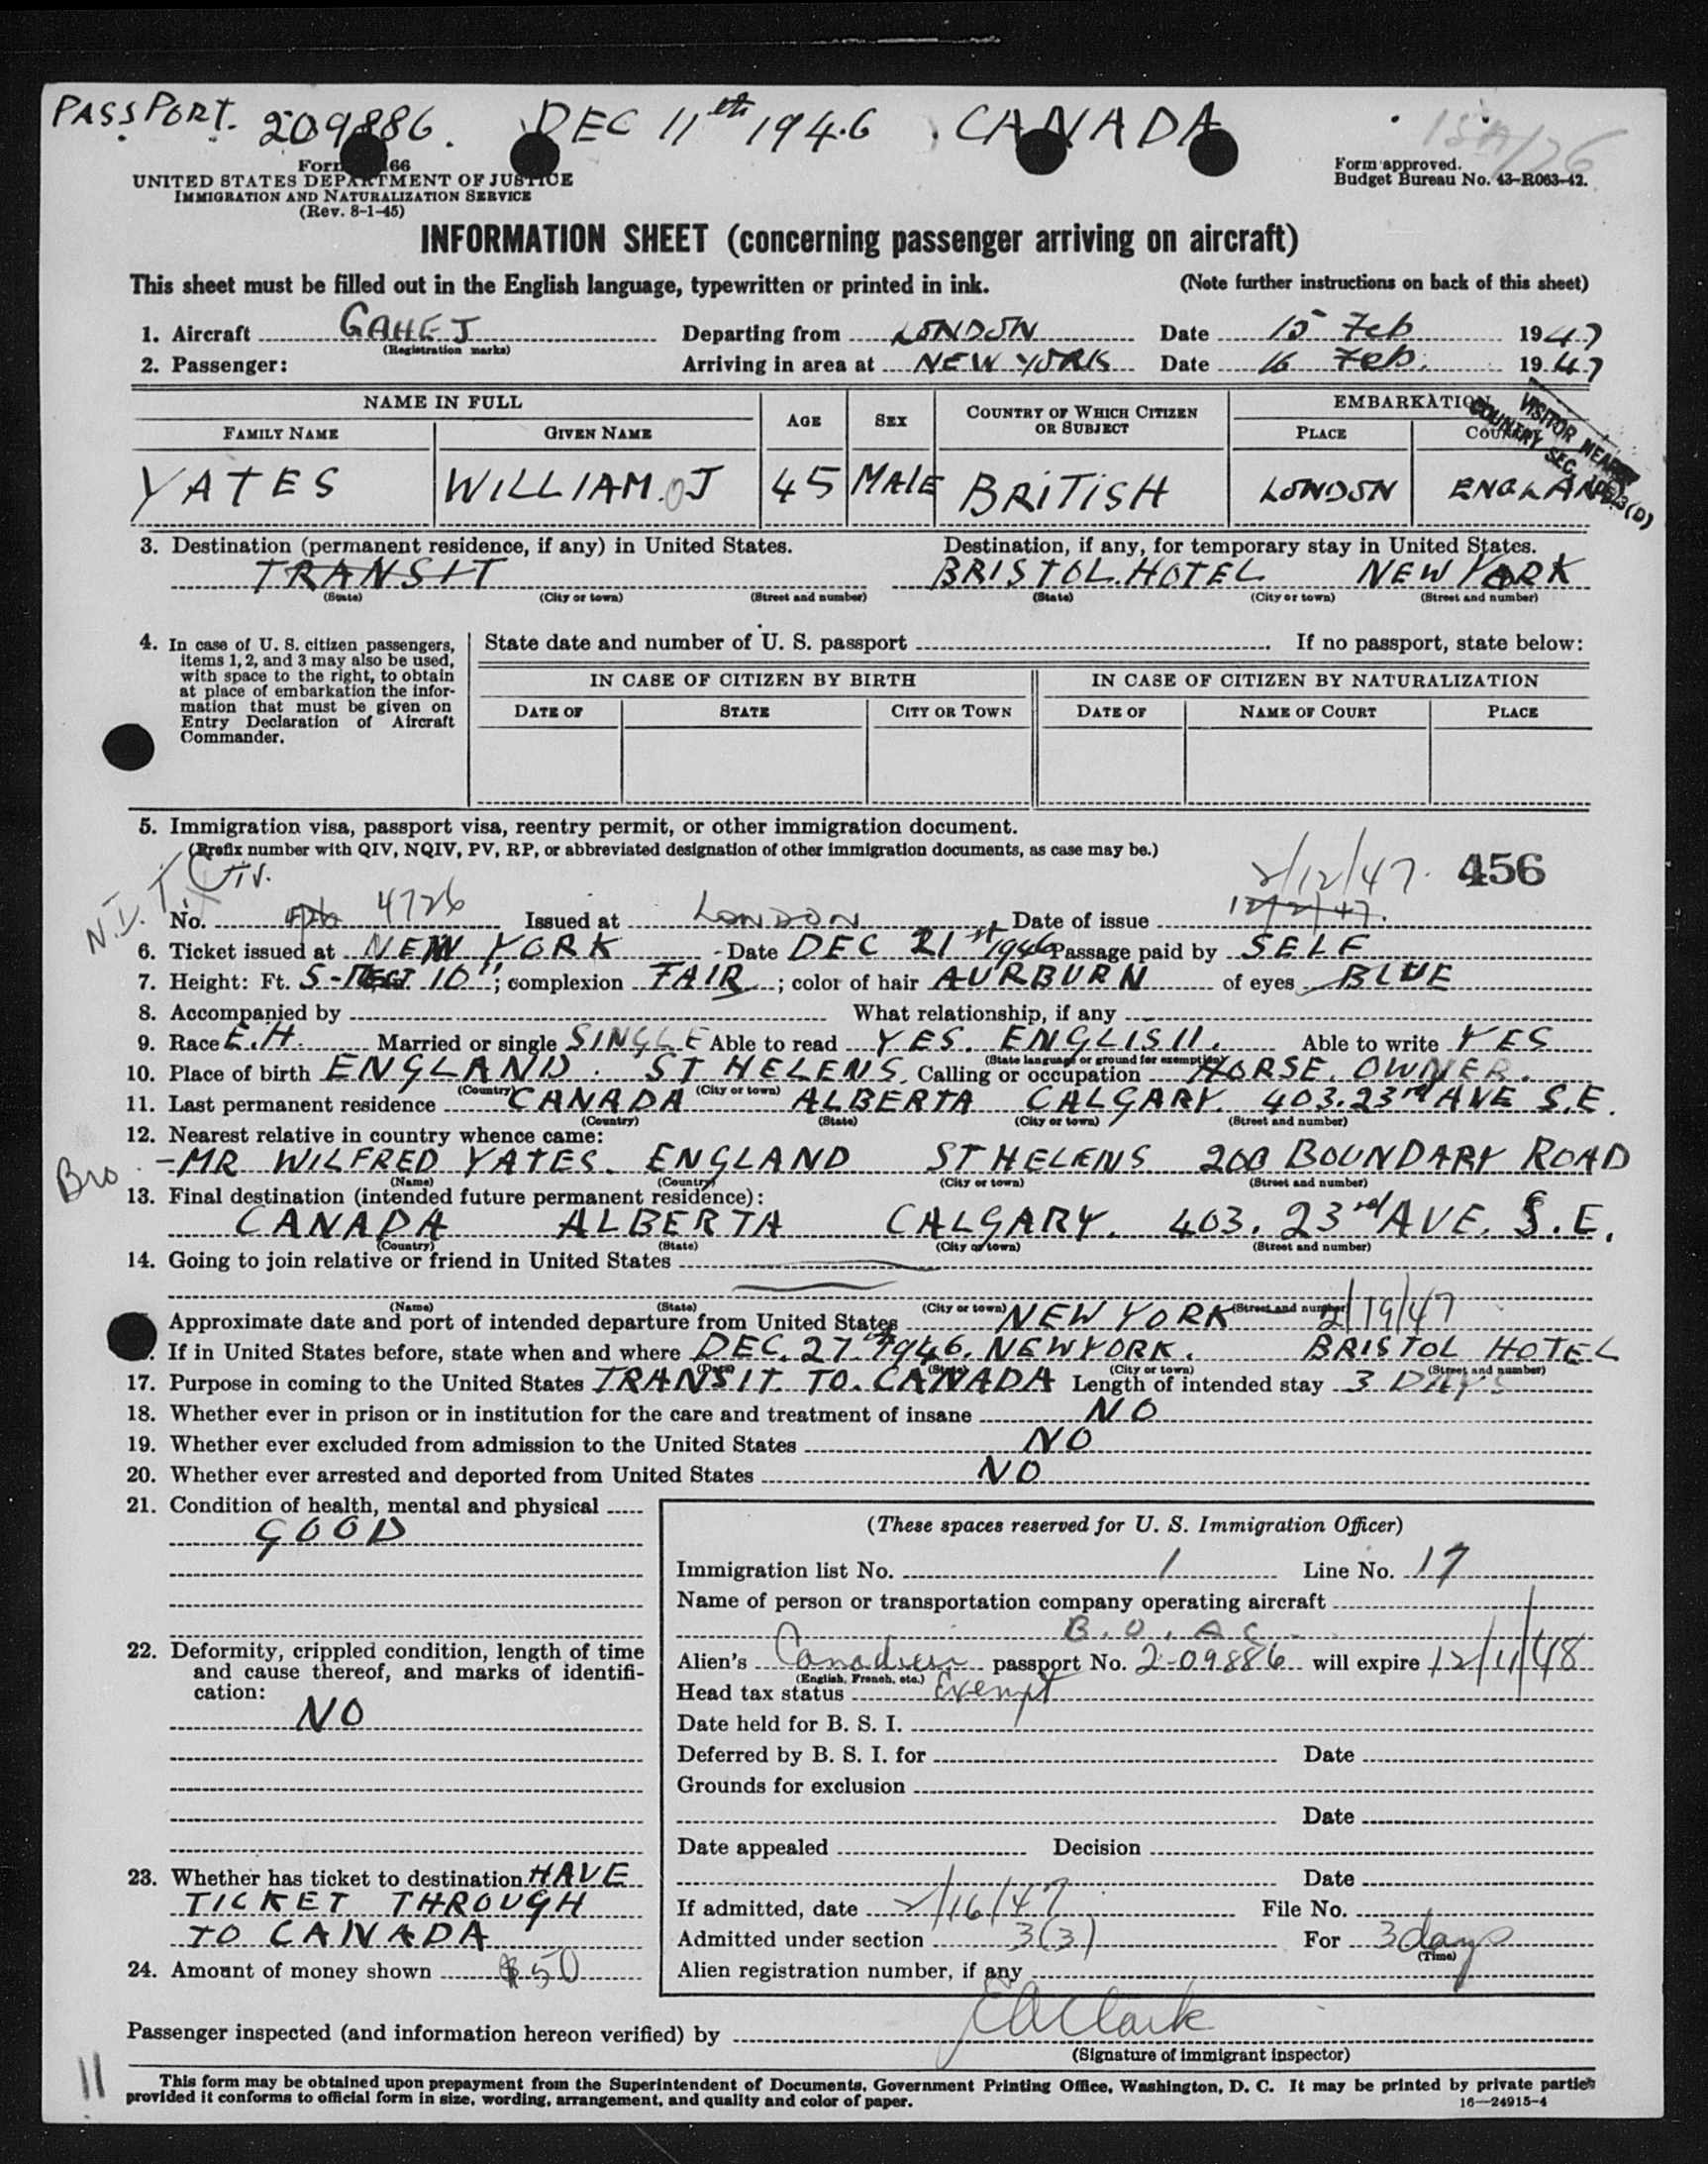 PASSPORT. 209886. DEC 11th 1946. CANADA
UNITED STATES DEPARTMENT OF JUSTICE
IMMIGRATION AND NATURALIZATION SERVICE
(Rev. 8-1-45)
Form approved.
Budget Bureau No. 43-R063-42.
INFORMATION SHEET (concerning passenger arriving on aircraft)
This sheet must be filled out in the English language, typewritten or printed in ink. (Note further instructions on back of this sheet)
1. Aircraft GAHEJ Departing from LONDON Date 15 Feb 1947
(Registration marks)
2. Passenger: Arriving in area at NEW YORK Date 16 Feb. 1947
NAME IN FULL AGE SEX COUNTRY OF WHICH CITIZEN OR SUBJECT EMBARKATION
FAMILY NAME GIVEN NAME PLACE COUNTRY
VISITOR
COUNTRY SEC.
YATES WILLIAM J 45 MALE BRITISH LONDON ENGLAND
3. Destination (permanent residence, if any) in United States. Destination, if any, for temporary stay in United States.
TRANSIT BRISTOL HOTEL NEW YORK
(State) (City or town) (Street and number) (State) (City or town) (Street and number)
4. In case of U. S. citizen passengers, items 1, 2, and 3 may also be used, with space to the right, to obtain at place of embarkation the information that must be given on Entry Declaration of Aircraft Commander.
State date and number of U. S. passport If no passport, state below:
IN CASE OF CITIZEN BY BIRTH IN CASE OF CITIZEN BY NATURALIZATION
DATE OF STATE CITY OR TOWN DATE OF NAME OF COURT PLACE
5. Immigration visa, passport visa, reentry permit, or other immigration document.
(Prefix number with QIV, NQIV, PV, RP, or abbreviated designation of other immigration documents, as case may be.)
2/12/47. 456
No. 4726 Issued at LONDON Date of issue 12/2/47.
6. Ticket issued at NEW YORK Date DEC 21st 1946 Passage paid by SELF
7. Height: Ft. 5- 10"; complexion FAIR; color of hair AURBURN of eyes BLUE
8. Accompanied by What relationship, if any
9. Race E.H. Married or single SINGLE Able to read YES. ENGLISH. Able to write YES
(State language or ground for exemption)
10. Place of birth ENGLAND. ST HELENS. Calling or occupation HORSE. OWNER.
(Country) (City or town)
11. Last permanent residence CANADA ALBERTA CALGARY. 403. 23rd AVE S.E.
(Country) (State) (City or town) (Street and number)
12. Nearest relative in country whence came:
Bro - MR WILFRED YATES. ENGLAND ST HELENS 200 BOUNDARY ROAD
(Name) (Country) (City or town) (Street and number)
13. Final destination (intended future permanent residence):
CANADA ALBERTA CALGARY. 403. 23rd AVE. S.E.
(Country) (State) (City or town) (Street and number)
14. Going to join relative or friend in United States
(Name) (State) (City or town) (Street and number)
Approximate date and port of intended departure from United States NEW YORK 2/19/47
If in United States before, state when and where DEC. 27th 1946. NEW YORK. BRISTOL HOTEL
(Date) (State) (City or town) (Street and number)
17. Purpose in coming to the United States TRANSIT. TO. CANADA Length of intended stay 3 DAYS
18. Whether ever in prison or in institution for the care and treatment of insane NO
19. Whether ever excluded from admission to the United States NO
20. Whether ever arrested and deported from United States NO
21. Condition of health, mental and physical
GOOD
22. Deformity, crippled condition, length of time and cause thereof, and marks of identification:
NO
23. Whether has ticket to destination HAVE
TICKET THROUGH
TO CANADA
24. Amount of money shown $50
(These spaces reserved for U. S. Immigration Officer)
Immigration list No. 1 Line No. 17
Name of person or transportation company operating aircraft
B.O.A.C.
Alien's Canadian passport No. 2-09886 will expire 12/11/48
(English, French, etc.)
Head tax status Exempt
Date held for B. S. I.
Deferred by B. S. I. for Date
Grounds for exclusion
Date
Date appealed Decision
Date
If admitted, date 2/16/47 File No.
Admitted under section 3(3) For 3 days
(Time)
Alien registration number, if any
Passenger inspected (and information hereon verified) by E A Clark
(Signature of immigrant inspector)
11
This form may be obtained upon prepayment from the Superintendent of Documents, Government Printing Office, Washington, D. C. It may be printed by private parties
provided it conforms to official form in size, wording, arrangement, and quality and color of paper. 16—24915-4